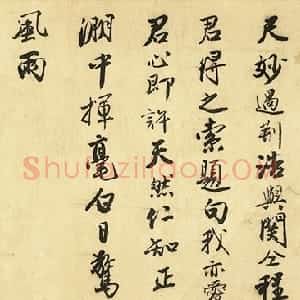 尺妙過荆浩與關仝程
君得之索題句我亦
君心即許天然仁知正
淵中揮毫白日驚
風雨
Shufaziliao.com